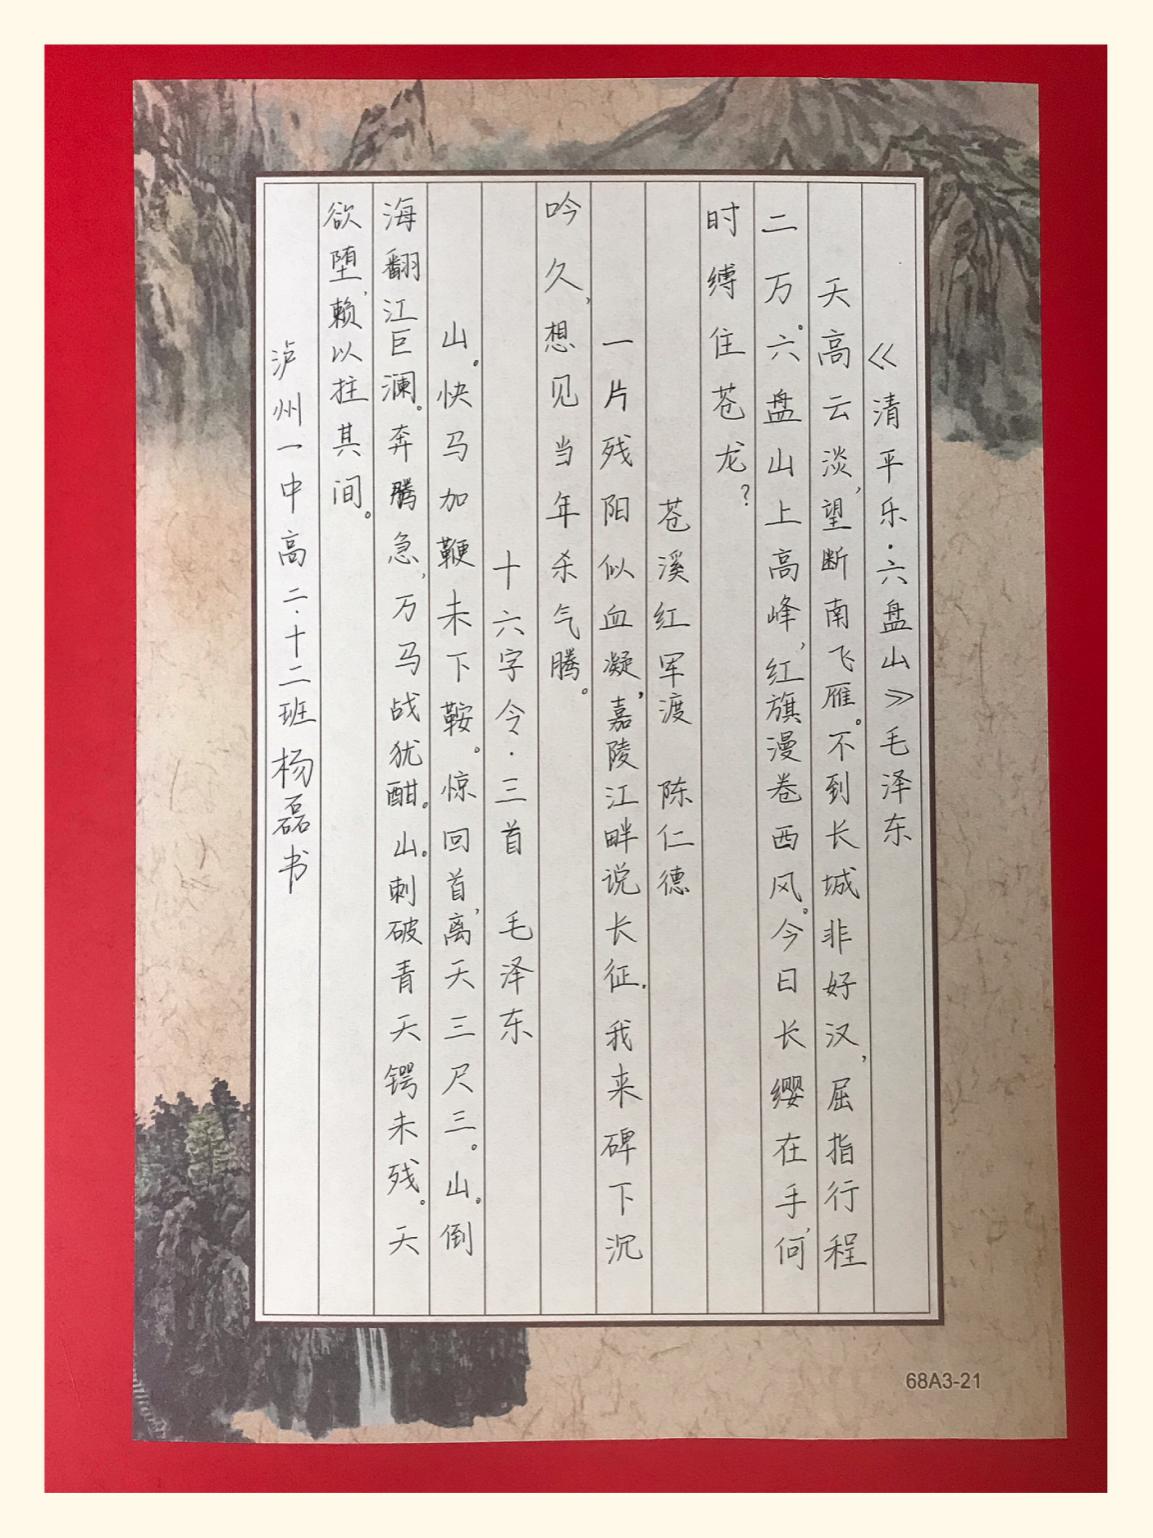 《清平乐·六盘山》毛泽东
天高云淡，望断南飞雁。不到长城非好汉，屈指行程
二万。六盘山上高峰，红旗漫卷西风。今日长缨在手，何
时缚住苍龙？
苍溪红军渡 陈仁德
一片残阳似血凝，嘉陵江畔说长征。我来碑下沉
吟久，想见当年杀气腾。
十六字令·三首 毛泽东
山。快马加鞭未下鞍。惊回首，离天三尺三。山。倒
海翻江巨澜。奔腾急，万马战犹酣。山。刺破青天锷未残。天
欲堕，赖以拄其间。
泸州一中高二·十二班 杨磊书
68A3-21